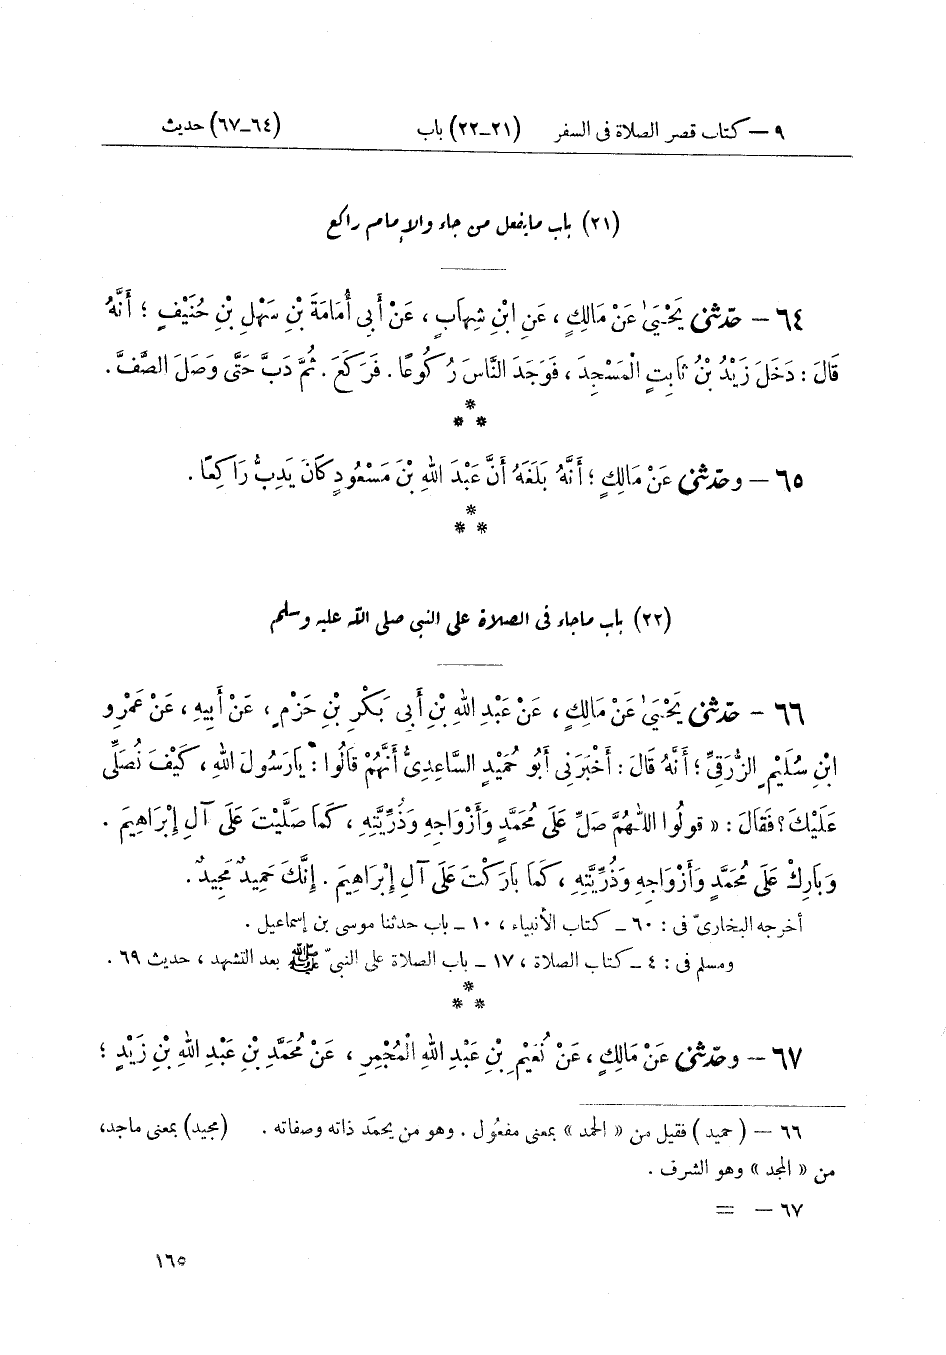 ٩ — كتاب قصر الصلاة فى السفر (٢١-٢٢) باب (٦٤-٦٧) حديث
(٢١) باب مايفعل من جاء والإمام راكع
٦٤ — حدّثنى يَحْيَىٰ عَنْ مَالِكٍ ، عَنِ ابْنِ شِهَابٍ ، عَنْ أَبِى أُمَامَةَ بْنِ سَهْلِ بْنِ حُنَيْفٍ ؛ أَنَّهُ
قَالَ : دَخَلَ زَيْدُ بْنُ ثَابِتٍ الْمَسْجِدَ ، فَوَجَدَ النَّاسَ رُكُوعًا . فَرَكَعَ . ثُمَّ دَبَّ حَتَّى وَصَلَ الصَّفَّ .
*
* *
٦٥ — وحدّثنى عَنْ مَالِكٍ ؛ أَنَّهُ بَلَغَهُ أَنَّ عَبْدَ اللهِ بْنَ مَسْعُودٍ كَانَ يَدِبُّ رَاكِعًا .
*
* *
(٢٢) باب ماجاء فى الصلاة على النبى صلى الله عليه وسلم
٦٦ — حدّثنى يَحْيَىٰ عَنْ مَالِكٍ ، عَنْ عَبْدِ اللهِ بْنِ أَبِى بَكْرِ بْنِ حَزْمٍ ، عَنْ أَبِيهِ ، عَنْ عَمْرِو
ابْنِ سُلَيْمٍ الزُّرَقِىِّ ؛ أَنَّهُ قَالَ : أَخْبَرَنِى أَبُو حُمَيْدٍ السَّاعِدِىُّ أَنَّهُمْ قَالُوا : يَارَسُولَ اللهِ ، كَيْفَ نُصَلِّى
عَلَيْكَ ؟ فَقَالَ : « قولُوا اللّٰهُمَّ صَلِّ عَلَى مُحَمَّدٍ وَأَزْوَاجِهِ وَذُرِّيَّتِهِ ، كَمَا صَلَّيْتَ عَلَى آلِ إِبْرَاهِيمَ .
وَبَارِكْ عَلَى مُحَمَّدٍ وَأَزْوَاجِهِ وَذُرِّيَّتِهِ ، كَمَا بَارَكْتَ عَلَى آلِ إِبْرَاهِيمَ . إِنَّكَ حَمِيدٌ مَجِيدٌ .
أخرجه البخارىّ فى : ٦٠ — كتاب الأنبياء ، ١٠ — باب حدثنا موسى بن إسماعيل .
ومسلم فى : ٤ — كتاب الصلاة ، ١٧ — باب الصلاة على النبىّ ﷺ بعد التشهد ، حديث ٦٩ .
*
* *
٦٧ — وحدّثنى عَنْ مَالِكٍ ، عَنْ نُعَيْمِ بْنِ عَبْدِ اللهِ الْمُجْمِرِ ، عَنْ مُحَمَّدِ بْنِ عَبْدِ اللهِ بْنِ زَيْدٍ ؛
٦٦ — (حميد) فقيل من « الحمد » بمعنى مفعُول . وهو من يحمَد ذاته وصفاته . (مجيد) بمعنى ماجد،
من « المجد » وهو الشرف .
٦٧ — =
١٦٥